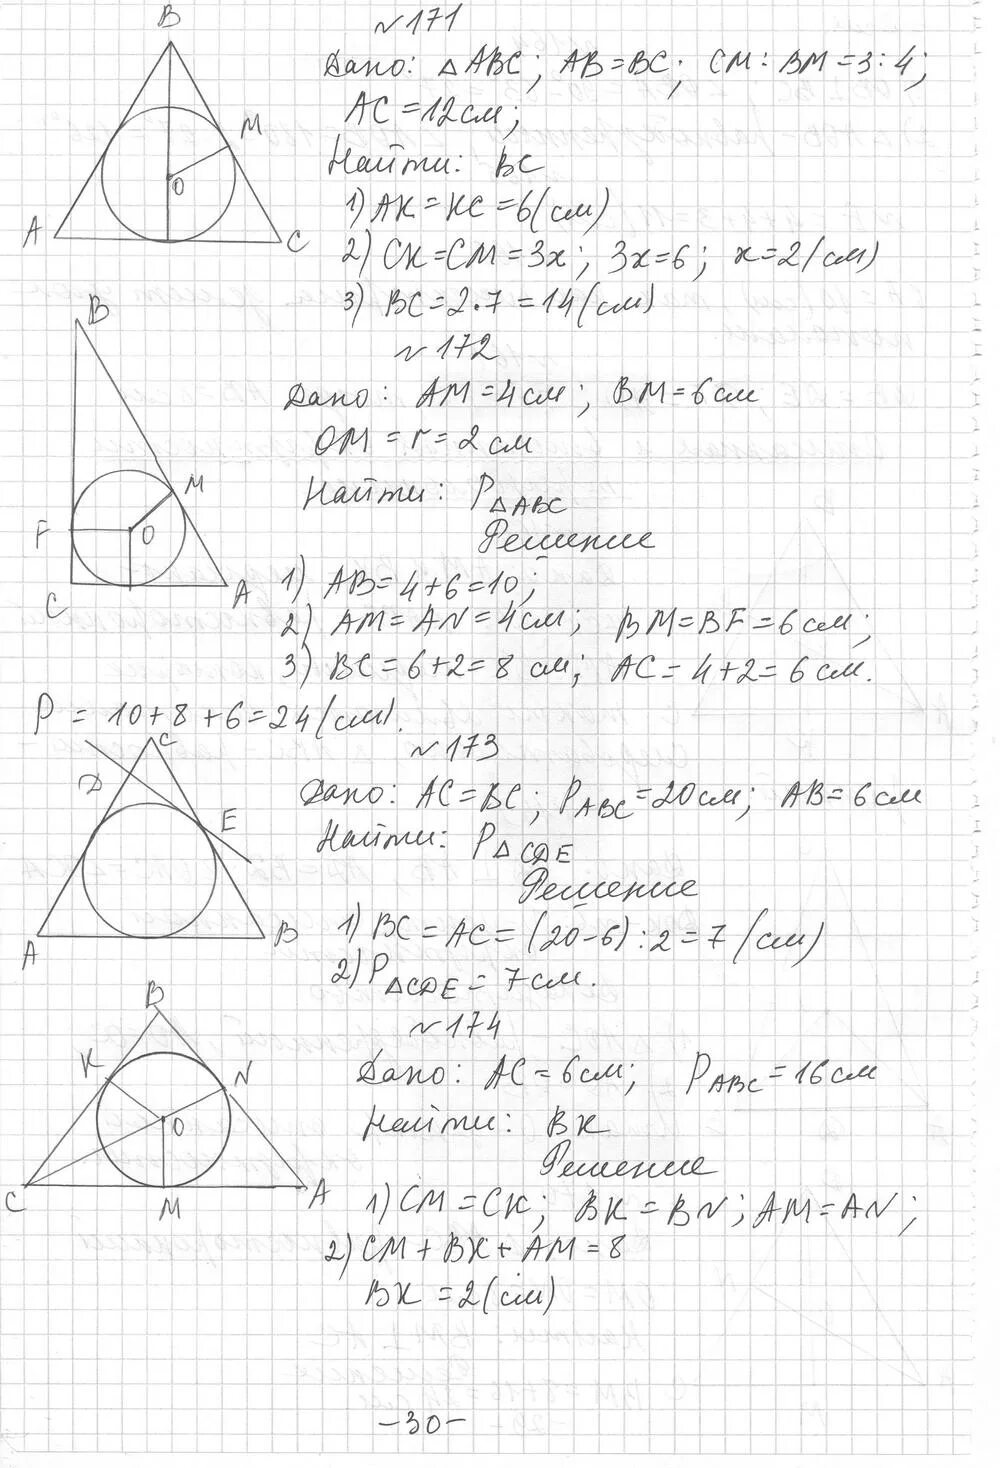 №171
B
Дано: △ABC; AB=BC; CM:BM=3:4;
AC=12см;
M
Найти: BC
O
1) AK=KC=6(см)
A
C
2) CK=CM=3x; 3x=6; x=2(см)
3) BC=2·7=14(см)
B
№172
Дано: AM=4см; BM=6см
OM=r=2см
M
Найти: P△ABC
F
O
Решение
C
A
1) AB=4+6=10;
2) AM=AN=4см; BM=BF=6см;
3) BC=6+2=8 см; AC=4+2=6см.
P=10+8+6=24(см).
C
№173
D
Дано: AC=BC; PABC=20см; AB=6см
E
Найти: P△CDE
Решение
A
B
1) BC=AC=(20-6):2=7(см)
2) P△CDE=7см.
B
№174
K
N
Дано: AC=6см; PABC=16см
O
Найти: BK
Решение
C
M
A
1) CM=CK; BK=BN; AM=AN;
2) CM+BK+AM=8
BK=2(см)
-30-